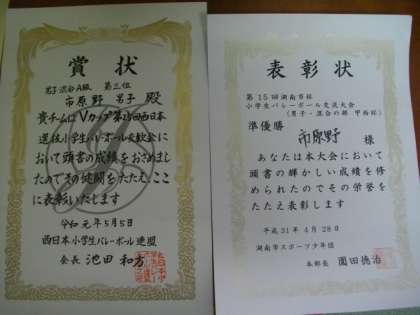 賞状
男子混合A級 第三位
市原野 男子 殿
貴チームはVカップ第15回西日本
選抜小学生バレーボール交歓会に
おいて頭書の成績をおさめまし
たのでその健闘をたたえ、ここ
に表彰いたします
令和元年5月5日
西日本小学生バレーボール連盟
会長 池田 和方
表彰状
第15回湖南市杯
小学生バレーボール交流大会
(男子・混合の部 甲西杯)
準優勝
市原野 様
あなたは本大会において
頭書の輝かしい成績を修
められたのでその栄誉を
たたえ表彰します
平成31年4月28日
湖南市スポーツ少年団
本部長 園田徳治